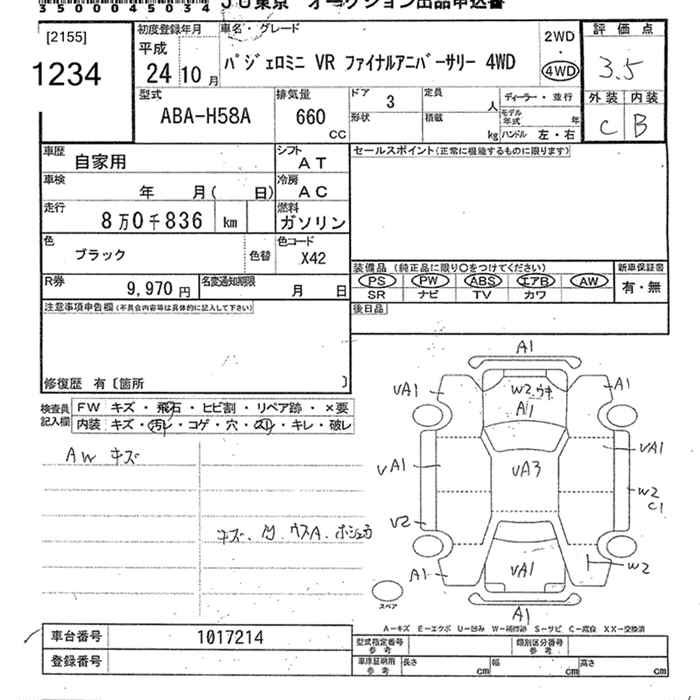 3500045034
JU東京 オークション出品申込書
[2155]
1234
初度登録年月
平成
24 10 月
車名・グレード
パジェロミニ VR ファイナルアニバーサリー 4WD
2WD
・
4WD
評価点
3.5
外装 内装
C B
型式
ABA-H58A
排気量
660
CC
ドア 3
形状
定員 人
積載 kg
ディーラー・並行
モデル年式 年
ハンドル 左・右
車歴
自家用
シフト
AT
セールスポイント(正常に機能するものに限ります)
車検
年 月( 日)
冷房
AC
走行
8万0千836 km
燃料
ガソリン
色
ブラック
色替
色コード
X42
装備品(純正品に限り○をつけてください)
PS PW ABS エアB AW
SR ナビ TV カワ
新車保証書
有・無
R券
9,970 円
名変通知期限
月 日
後日品
注意事項申告欄(不具合内容等は具体的に記入して下さい)
修復歴 有〔箇所 〕
検査員
記入欄
FW キズ・飛石・ヒビ割・リペア跡・×要
内装 キズ・汚レ・コゲ・穴・スレ・キレ・破レ
AW キズ
A1
VA1
W2.ウキ
A1
A1
VA1
VA3
VA1
W2
C1
V2
A1
VA1
W2
A1
スペア
A-キズ E-エクボ U-凹み W-補修跡 S-サビ C-腐食 XX-交換済
車台番号
1017214
登録番号
型式指定番号
参考
類別区分番号
参考
車庫証明用
参考
長さ cm
幅 cm
高さ cm